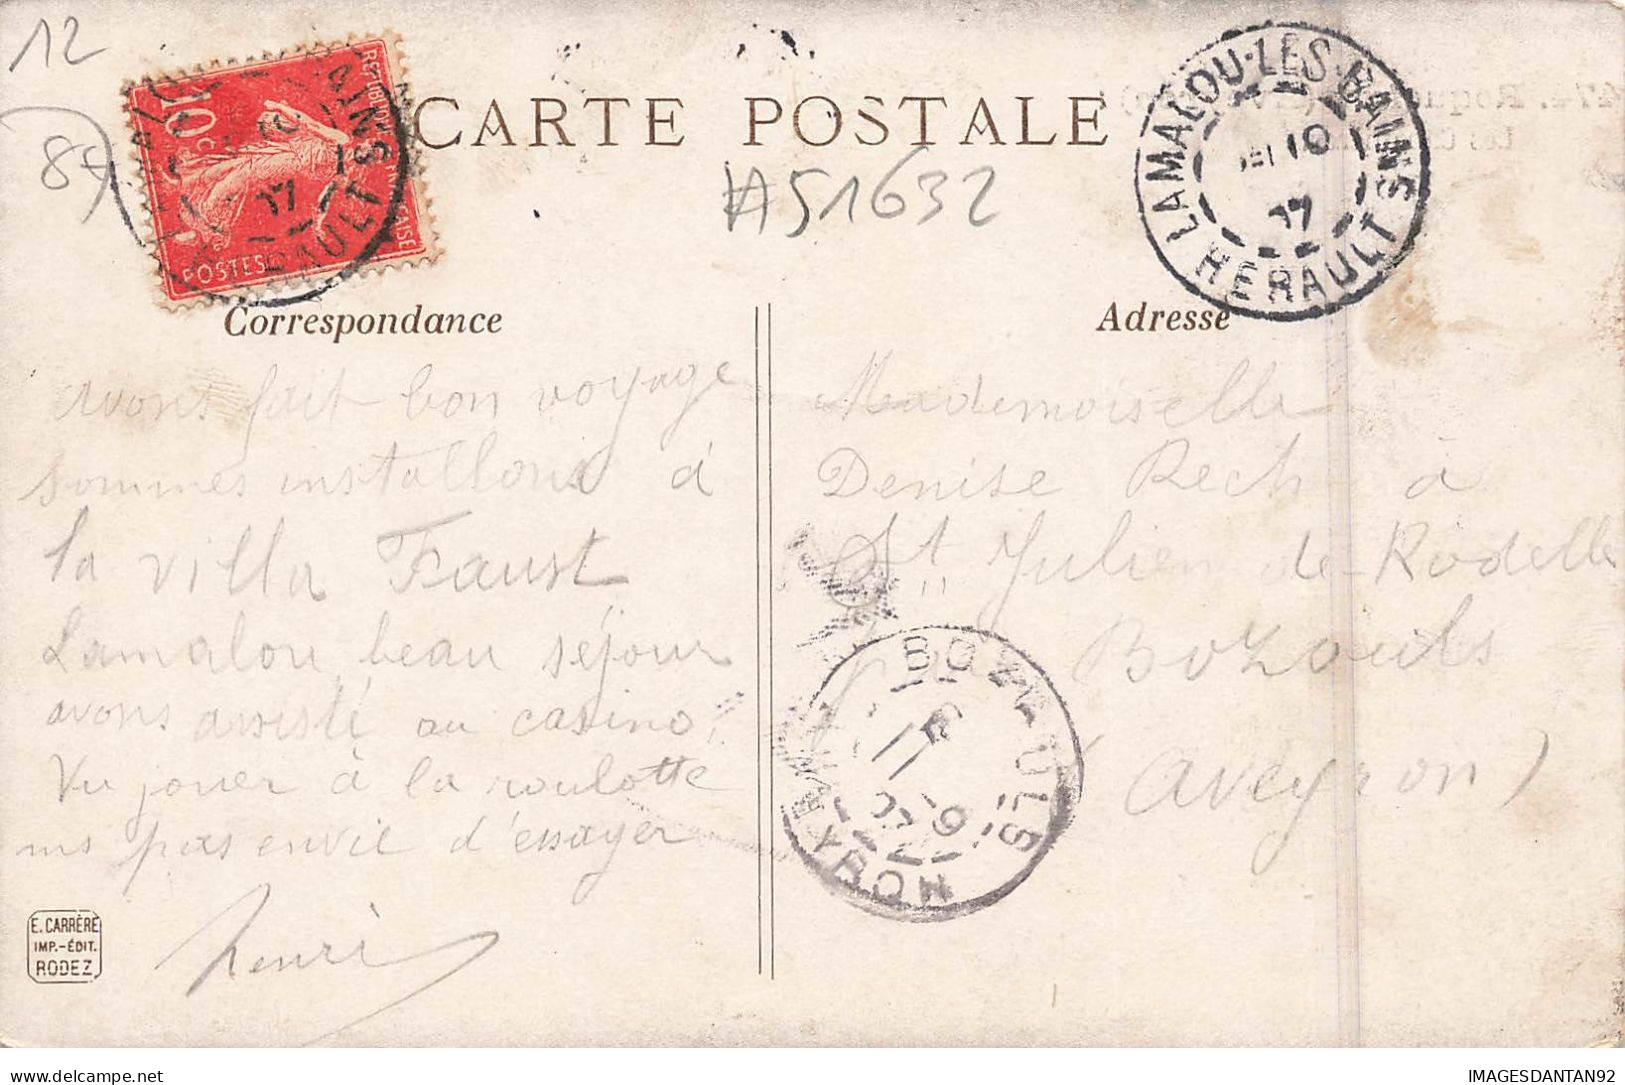 12
84
REPUBLIQUE FRANÇAISE
10c
POSTES
CARTE POSTALE
A51632
LAMALOU-LES-BAINS
10
07
HERAULT
Correspondance
Adresse
avons fait bon voyage
sommes installons à
la villa Faust
Lamalou beau séjour
avons assisté au casino,
Vu jouer à la roulotte
pas envie d'essayer
henri
Mademoiselle
Denise Rech à
St Julien de Rodelle
Bozouls
(Aveyron)
BOZOULS
11 - 9
07
AVEYRON
E. CARRÈRE
IMP.-ÉDIT.
RODEZ
IMAGESDANTAN92